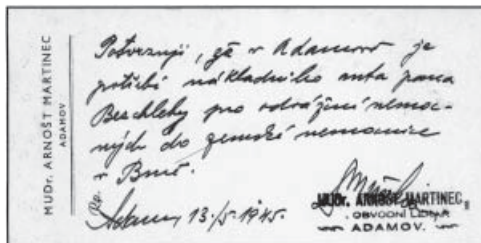 MUDr. ARNOŠT MARTINEC
ADAMOV
Potvrzuji, že v Adamově je
potřebí nákladního auta pana
Bezchleby pro odvážení nemoc-
ných do zemské nemocnice
v Brně.
Adamov 13./5. 1945.
MUDr. ARNOŠT MARTINEC,
OBVODNÍ LÉKAŘ
ADAMOV.